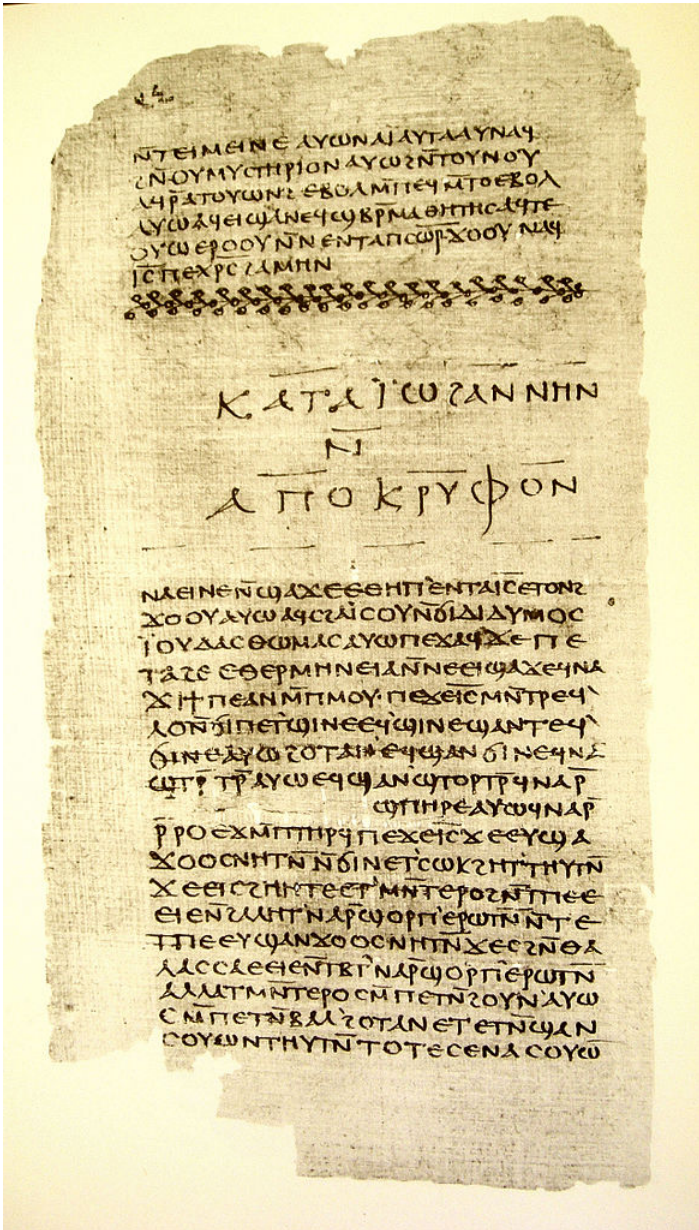 ⲛ̄ⲧⲉⲓⲙⲉⲓⲛⲉ ⲁⲩⲱⲛⲁⲓⲁⲩⲧⲁⲁⲩⲛⲁϥ
ϩⲛ̄ⲟⲩⲙⲩⲥⲧⲏⲣⲓⲟⲛ ⲁⲩⲱϩⲛ̄ⲧⲟⲩⲛⲟⲩ
ⲁϥⲣ̄ⲁⲧⲟⲩⲱⲛϩ ⲉⲃⲟⲗⲙ̄ⲡⲉϥⲙ̄ⲧⲟⲉⲃⲟⲗ
ⲁⲩⲱⲁϥⲉⲓϣⲁⲛⲉϥϣⲃⲣ̄ⲙⲁⲑⲏⲧⲏⲥⲁϥⲧⲉ
ⲟⲩⲱⲉⲣⲟⲟⲩⲛ̄ⲛⲉⲛⲧⲁⲡⲥⲱ̄ⲣ̄ϫⲟⲟⲩ ⲛⲁϥ
ⲓ̄ⲥ̄ⲡⲉⲭⲣ̄ⲥ̄ϩⲁⲙⲏⲛ
ⲕⲁⲧⲁ ⲓ̈ⲱϩⲁⲛⲛⲏⲛ
ⲛ̄
ⲁⲡⲟⲕⲣⲩⲫⲟⲛ
ⲛⲁⲉⲓⲛⲉⲛ̄ϣⲁϫⲉⲉⲑⲏⲡ'ⲉⲛⲧⲁⲓ̄ⲥ̄ⲉⲧⲟⲛϩ
ϫⲟⲟⲩⲁⲩⲱⲁϥⲥϩⲁⲓⲥⲟⲩⲛ̄ϭⲓⲇⲓⲇⲩⲙⲟⲥ
ⲓ̈ⲟⲩⲇⲁⲥⲑⲱⲙⲁⲥⲁⲩⲱⲡⲉϫⲁϥϫⲉⲡⲉ
ⲧⲁϩⲉⲉⲑⲉⲣⲙⲏⲛⲉⲓⲁⲛ̄ⲛⲉⲉⲓϣⲁϫⲉϥⲛⲁ
ϫⲓϯⲡⲉⲁⲛⲙ̄ⲡⲙⲟⲩ·ⲡⲉϫⲉⲓ̄ⲥ̄ⲙⲛ̄ⲧⲣⲉϥ'
ⲗⲟⲛ̄ϭⲓⲡⲉⲧϣⲓⲛⲉⲉϥϣⲓⲛⲉϣⲁⲛⲧⲉϥ'
ϭⲓⲛⲉⲁⲩⲱϩⲟⲧⲁⲛⲉϥϣⲁⲛϭⲓⲛⲉϥⲛⲁ
ϣⲧⲣ̄ⲧⲣ̄ⲁⲩⲱⲉϥϣⲁⲛϣⲧⲟⲣⲧⲣ̄ϥⲛⲁⲣ̄
ϣⲡⲏⲣⲉⲁⲩⲱϥⲛⲁⲣ̄
ⲣ̄ⲣⲟⲉϫⲙ̄ⲡⲧⲏⲣϥⲡⲉϫⲉⲓ̄ⲥ̄ϫⲉⲉⲩϣⲁ
ϫⲟⲟⲥⲛⲏⲧⲛ̄ⲛ̄ϭⲓⲛⲉⲧ'ⲥⲱⲕϩⲏⲧ'ⲧⲏⲩⲧⲛ̄
ϫⲉⲉⲓⲥϩⲏⲏⲧⲉⲉⲧ'ⲙⲛ̄ⲧⲉⲣⲟϩⲛ̄ⲧⲡⲉⲉ
ⲉⲓⲉⲛϩⲁⲗⲏⲧ'ⲛⲁⲣ̄ϣⲟⲣⲡ'ⲉⲣⲱⲧⲛ̄ⲛ̄ⲧⲉ
ⲧⲡⲉⲉⲩϣⲁⲛϫⲟⲟⲥⲛⲏⲧⲛ̄ϫⲉⲥϩⲛ̄ⲑⲁ
ⲗⲁⲥⲥⲁⲉⲉⲓⲉⲛ̄ⲧⲃⲧ'ⲛⲁⲣ̄ϣⲟⲣⲡ'ⲉⲣⲱⲧⲛ̄
ⲁⲗⲗⲁⲧⲙⲛ̄ⲧⲉⲣⲟⲥⲙ̄ⲡⲉⲧⲛ̄ϩⲟⲩⲛ'ⲁⲩⲱ
ⲥⲙ̄ⲡⲉⲧⲛ̄ⲃⲁⲗ'ϩⲟⲧⲁⲛⲉⲧⲉⲧⲛ̄ϣⲁⲛ
ⲥⲟⲩⲱⲛⲧⲏⲩⲧⲛ̄ⲧⲟⲧⲉⲥⲉⲛⲁⲥⲟⲩⲱ